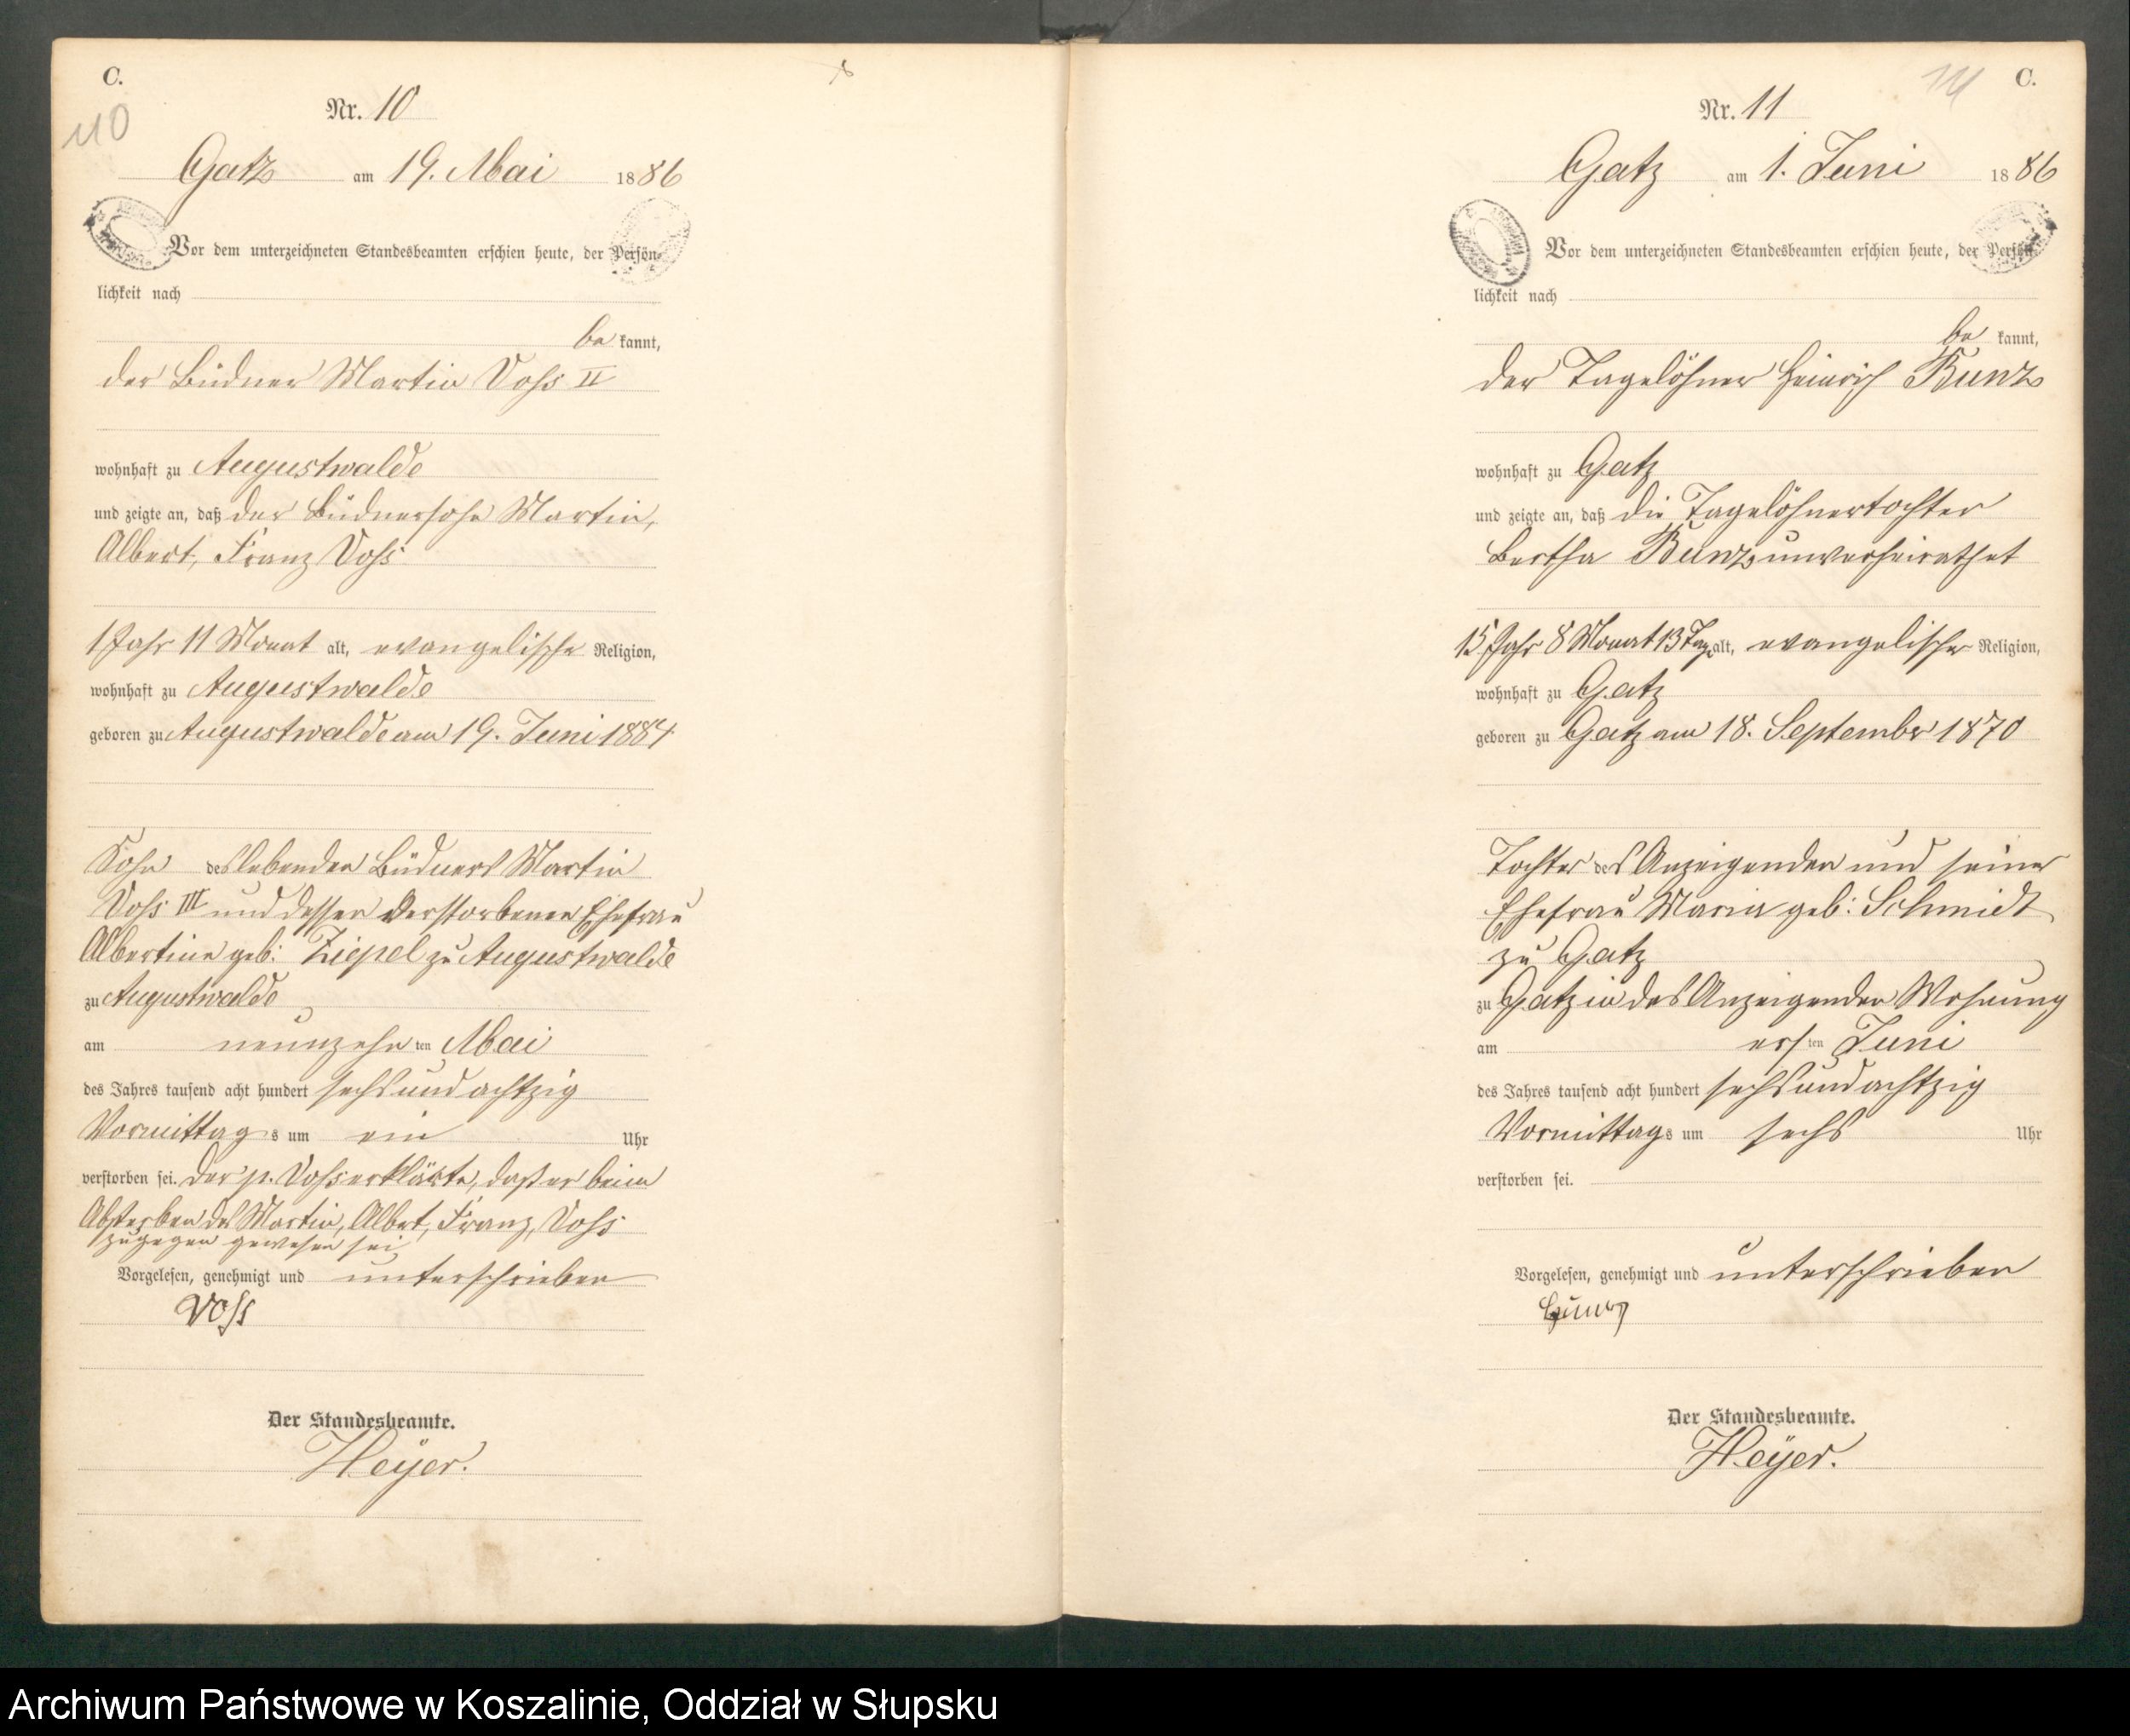 C.
110
Nr. 10
Gatz am 19. Mai 1886
Vor dem unterzeichneten Standesbeamten erschien heute, der Persön-
lichkeit nach
be kannt,
der Büdner Martin Voss II
wohnhaft zu Augustwalde
und zeigte an, daß der Büdnersohn Martin,
Albert, Franz Voss
1 Jahr 11 Monat alt, evangelische Religion,
wohnhaft zu Augustwalde
geboren zu Augustwalde am 19. Juni 1884
Sohn des lebenden Büdners Martin
Voss III und dessen verstorbenen Ehefrau
Albertine geb: Ziepel zu Augustwalde
zu Augustwalde
am neunzehn ten Mai
des Jahres tausend acht hundert sechs und achtzig
Vormittag s um ein Uhr
verstorben sei. Der p. Voss erklärte, daß er beim
Absterben des Martin, Albert, Franz, Voss
zugegen gewesen sei
Vorgelesen, genehmigt und unterschrieben
Voss
Der Standesbeamte.
Heyer.
C.
Nr. 11
Gatz am 1. Juni 1886
Vor dem unterzeichneten Standesbeamten erschien heute, der Persön-
lichkeit nach
be kannt,
der Tagelöhner Heinrich Bunz
wohnhaft zu Gatz
und zeigte an, daß die Tagelöhnertochter
Bertha Bunz unverheirathet
15 Jahr 8 Monat 13 Tag alt, evangelischer Religion,
wohnhaft zu Gatz
geboren zu Gatz am 18. September 1870
Tochter des Anzeigenden und seiner
Ehefrau Maria geb: Schmidt
zu Gatz
zu Gatz in des Anzeigenden Wohnung
am ers ten Juni
des Jahres tausend acht hundert sechs und achtzig
Vormittags um sechs Uhr
verstorben sei.
Vorgelesen, genehmigt und unterschrieben
Der Standesbeamte.
Heyer.
Archiwum Państwowe w Koszalinie, Oddział w Słupsku